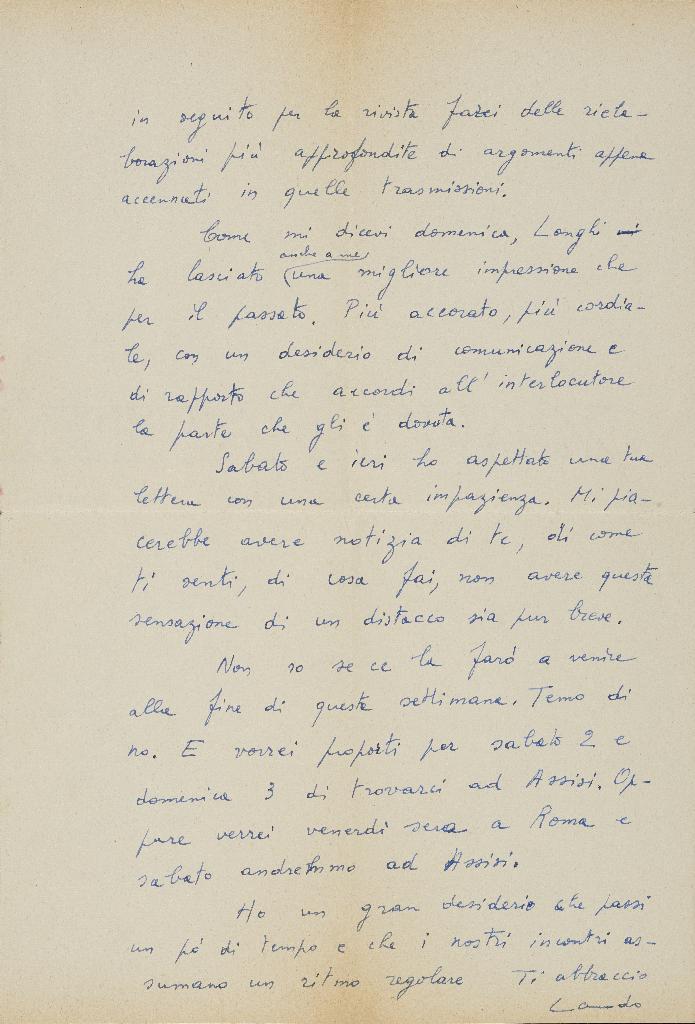 in seguito per la rivista farei delle riela-
borazioni più approfondite di argomenti appena
accennati in quelle trasmissioni.
Come mi dicevi domenica, Longhi
anche a me
ha lasciato una migliore impressione che
per il passato. Più accorato, più cordia-
le, con un desiderio di comunicazione e
di rapporto che accordi all'interlocutore
la parte che gli è dovuta.
Sabato e ieri ho aspettato una tua
lettera con una certa impazienza. Mi pia-
cerebbe avere notizia di te, di come
ti senti, di cosa fai, non avere questa
sensazione di un distacco sia pur breve.
Non so se ce la farò a venire
alla fine di questa settimana. Temo di
no. E vorrei proporti per sabato 2 e
domenica 3 di trovarci ad Assisi. Op-
pure verrei venerdì sera a Roma e
sabato andremmo ad Assisi.
Ho un gran desiderio che passi
un pò di tempo e che i nostri incontri as-
sumano un ritmo regolare Ti abbraccio
Lando